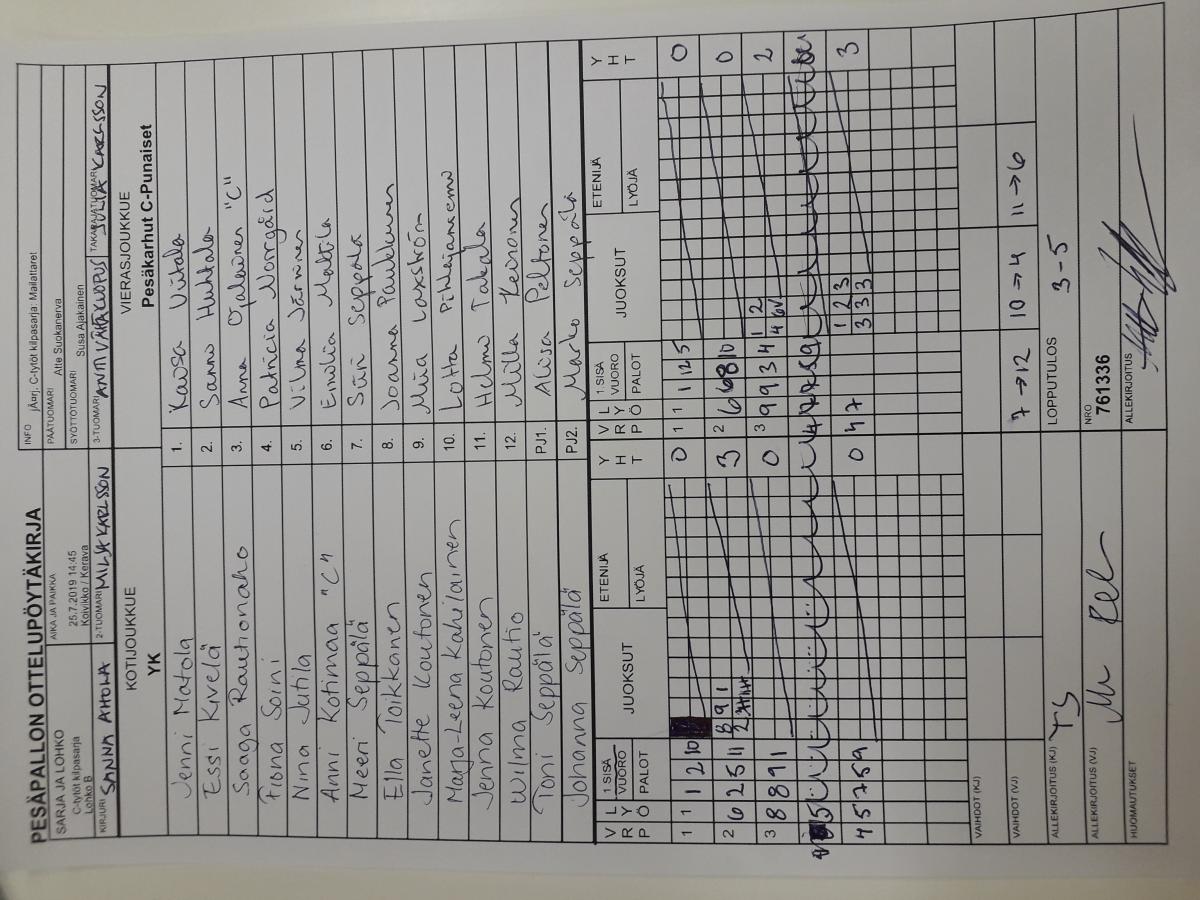 PESÄPALLON OTTELUPÖYTÄKIRJA
SARJA JA LOHKO
C-tytöt kilpasarja
Lohko B
AIKA JA PAIKKA
25.7.2019 14:45
Koivikko / Kerava
INFO
jÄrrj. C-tytöt kilpasarja: Mailattaret
PÄÄTUOMARI Atte Suokanerva
SYÖTTÖTUOMARI Susa Ajakainen
KIRJURI SANNA AHOLA 2-TUOMARI MILJA KARLSSON 3-TUOMARI ANTTI VÄHÄKUOPUS TAKARAJATUOMARI JULIA KARLSSON
KOTIJOUKKUE
YK
VIERASJOUKKUE
Pesäkarhut C-Punaiset
Jenni Matola 1. Kaisa Viitala
Essi Kivelä 2. Sanni Huhtala
Saaga Rautionaho 3. Anna Ojalainen "C"
Fiona Soini 4. Patricia Norrgård
Nina Jutila 5. Vilma Järvinen
Anni Kotimaa "C" 6. Emilia Mattila
Meeri Seppälä 7. Siiri Seppälä
Ella Toikkanen 8. Joanna Paukkunen
Janette Koutonen 9. Miia Laxström
Marja-Leena Kahilainen 10. Lotta Pihlajaniemi
Jenna Koutonen 11. Helmi Takala
Wilma Rautio 12. Milla Keinonen
Toni Seppälä PJ1. Aliisa Peltonen
Johanna Seppälä PJ2. Marko Seppälä
VRP LYÖ 1.SISÄVUORO PALOT JUOKSUT ETENIJÄ LYÖJÄ YHT VRP LYÖ 1.SISÄVUORO PALOT JUOKSUT ETENIJÄ LYÖJÄ YHT
1 1 1 2 10 0 1 1 1 12 5 0
2 6 2 5 11 8 9 1 3 2 6 6 8 10 0
3 8 8 9 1 0 3 9 9 3 4 1 2 2
4 5 7 5 9 0 4 7 1 2 3 3
3 3 3
VAIHDOT (KJ)
VAIHDOT (VJ) 7→12 10→4 11→6
ALLEKIRJOITUS (KJ) TS LOPPUTULOS 3-5
ALLEKIRJOITUS (VJ) NRO 761336
HUOMAUTUKSET ALLEKIRJOITUS